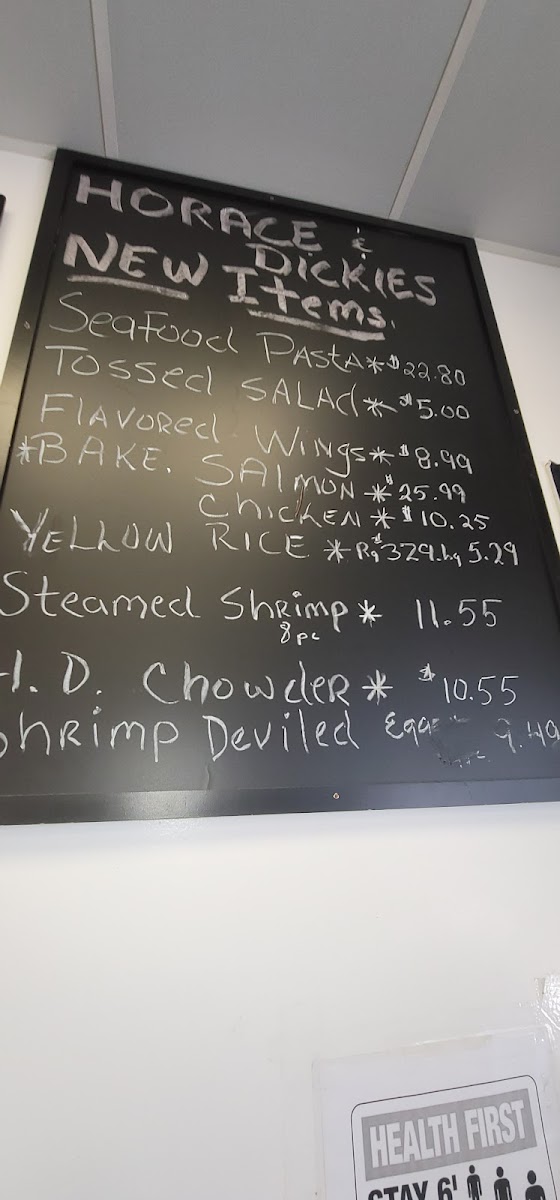 HORACE &
DICKIES
NEW Items.
Seafood PASTA * $22.80
Tossed SALAd * $5.00
Flavored Wings * $8.99
*BAKE. SAlmon * $25.99
Chicken * $10.25
YELLOW RICE * Rg $3.29 Lg 5.29
Steamed Shrimp * 11.55
8pc
H.D. Chowder * $10.55
Shrimp Deviled Eggs 9.49
HEALTH FIRST
STAY 6'